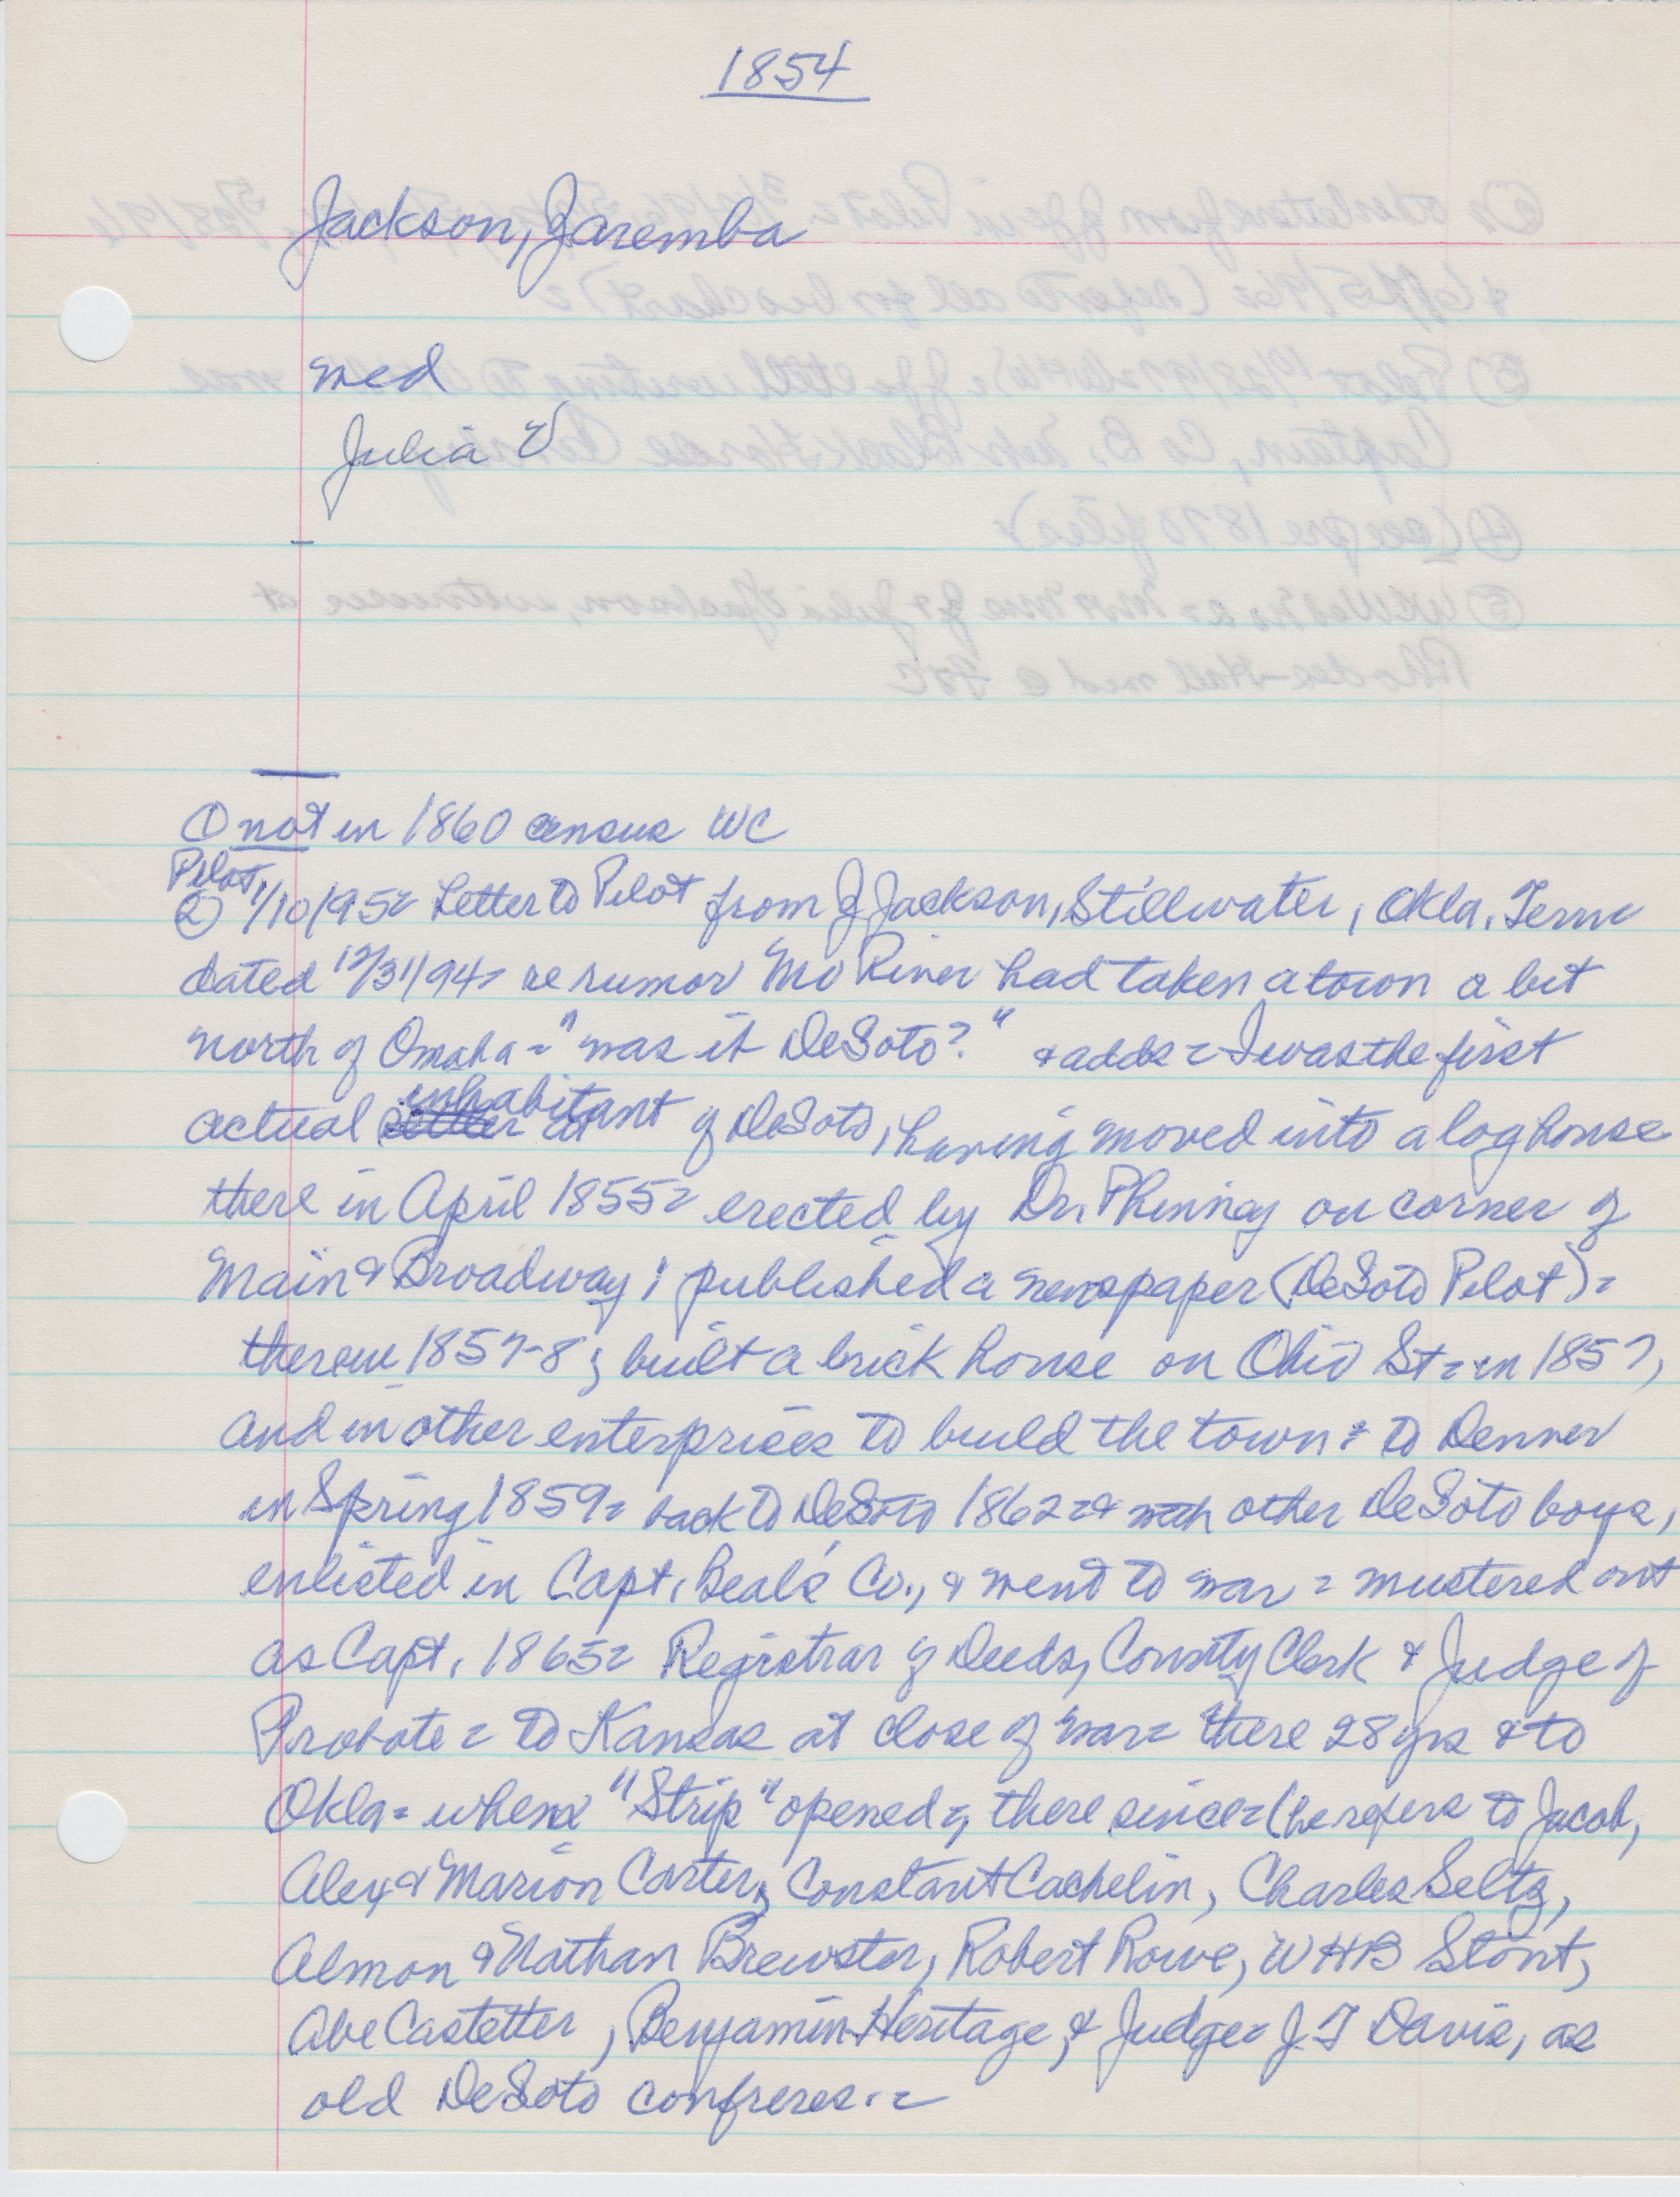 1854
Jackson, Zaremba
med
Julia V
① not in 1860 census WC
Pilot,
② 1/10/95= Letter to Pilot from Z Jackson, Stillwater, Okla. Terr
dated 12/31/94= re rumor Mo River had taken a town a bit
north of Omaha = "was it DeSoto?" & adds = I was the first
inhabitant
actual settler at of DeSoto, having moved into a log house
there in April 1855= erected by Dr. Phinney on corner of
Main & Broadway; published a newspaper (DeSoto Pilot)=
there in 1857-8; built a brick house on Ohio St= in 1857,
and in other enterprises to build the town= to Denver
in Spring 1859= back to DeSoto 1862=& with other DeSoto boys,
enlisted in Capt. Beal's Co., & went to war = mustered out
as Capt. 1865= Registrar of Deeds, County Clerk & Judge of
Probate = to Kansas at close of war= there 28 yrs & to
Okla= when "Strip" opened, there since= (he refers to Jacob,
Alex & Marion Carter, Constant Cachelin, Charles Seltz,
Almon & Nathan Brewster, Robert Rowe, WHB Stout,
Abe Castetter, Benjamin Heritage, & Judge= J.T Davis, as
old DeSoto confreres.=